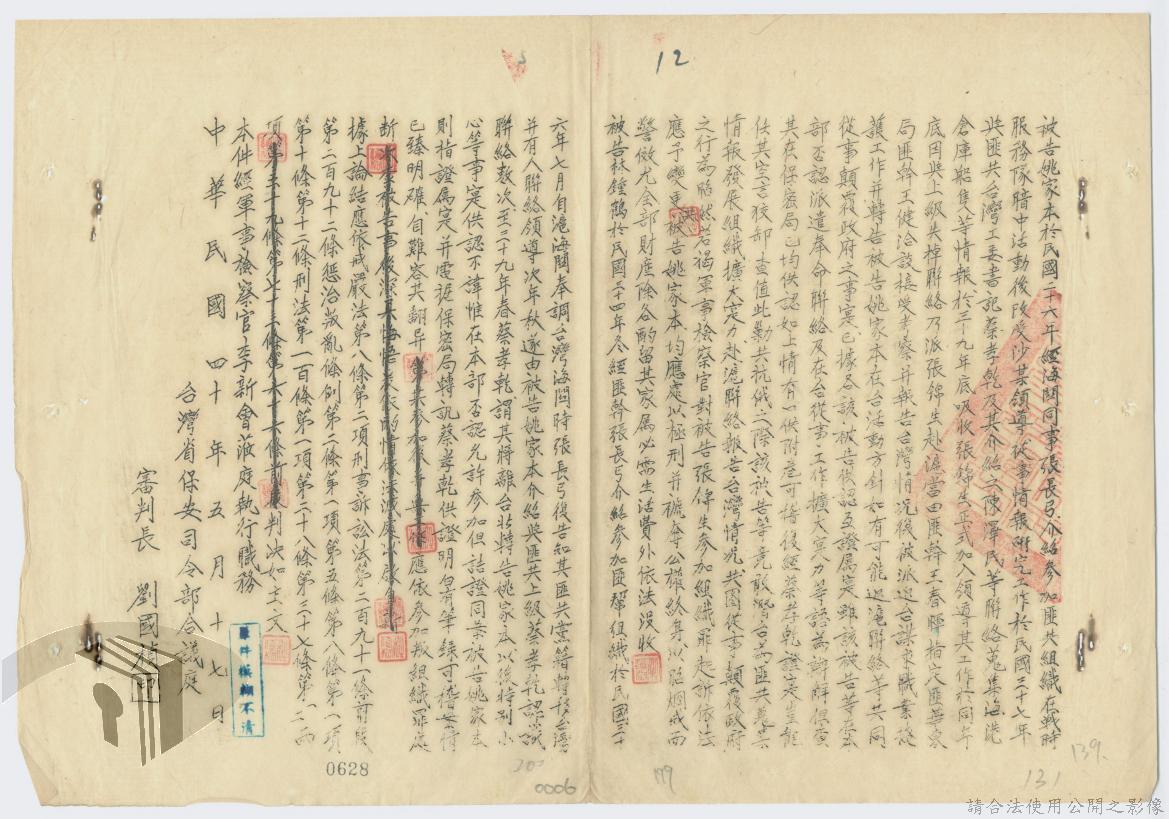 12
被告姚家本於民國二十六年經海關同事張長弓介紹參加匪共組織在戰時
服務隊暗中活動後改受沙某領導從事情報研究工作於民國三十七年
與匪共台灣工委書記蔡孝乾及其介紹之陳澤民等聯絡蒐集海港
倉庫船隻等情報於三十九年底吸收張偉生正式加入領導其工作於同年
底因與上級失掉聯絡乃派張偉生赴滬當由匪幹王春暉指定匪華東
局匪幹王健洽談接受考察并報告台灣情況後被派返台謀求職業掩
護工作并轉告被告姚家本在台活動方針如有可能返滬聯絡等共同
從事顛覆政府之事實已據各該被告供認互證屬實雖該被告等在本
部否認派遣奉命聯絡及在台從事工作擴大實力等語為辯解但查
其在保密局已均供認如上情有口供附卷可稽後經蔡孝乾證實豈能
任其空言狡卸查值此勦共抗俄之際該被告等竟敢潛台為匪共蒐集
情報發展組織擴大實力赴滬聯絡報告台灣情況共圖從事顛覆政府
之行為昭然若揭軍事檢察官對被告張偉生參加組織罪起訴依法
應予變更被告姚家本均應處以極刑并褫奪公權終身以昭炯戒而
警傚尤全部財產除各酌留其家屬必需生活費外依法沒收
被告林鍾鵠於民國三十四年冬經匪幹張長弓介紹參加匪幫組織於民國三十
六年七月自滬海關奉調台灣海關時張長弓復告知其匪共黨籍暫移台灣
并有人聯絡領導次年秋遂由被告姚家本介紹與匪共上級蔡孝乾認識
聯絡數次至三十九年春蔡孝乾謂其將離台北轉告姚家本以後特別小
心等事實供認不諱惟在本部否認允許參加但詰證同案被告姚家本
則指證屬實并電證保密局轉訊蔡孝乾供證明白有筆錄可稽案情
已臻明確自難容其翻異應依參加叛亂組織罪處
斷
據上論結應依戒嚴法第八條第二項刑事訴訟法第二百九十一條前段
第二百九十二條懲治叛亂條例第二條第一項第五條第八條第一項
第十條第十二條刑法第一百條第一項第二十八條第三十七條第一二兩
項判決如主文
本件經軍事檢察官李新會蒞庭執行職務
中華民國四十年五月十七日
台灣省保安司令部合議庭
審判長 劉國楨印
原件模糊不清
0628
0006
119
131
139
請合法使用公開之影像